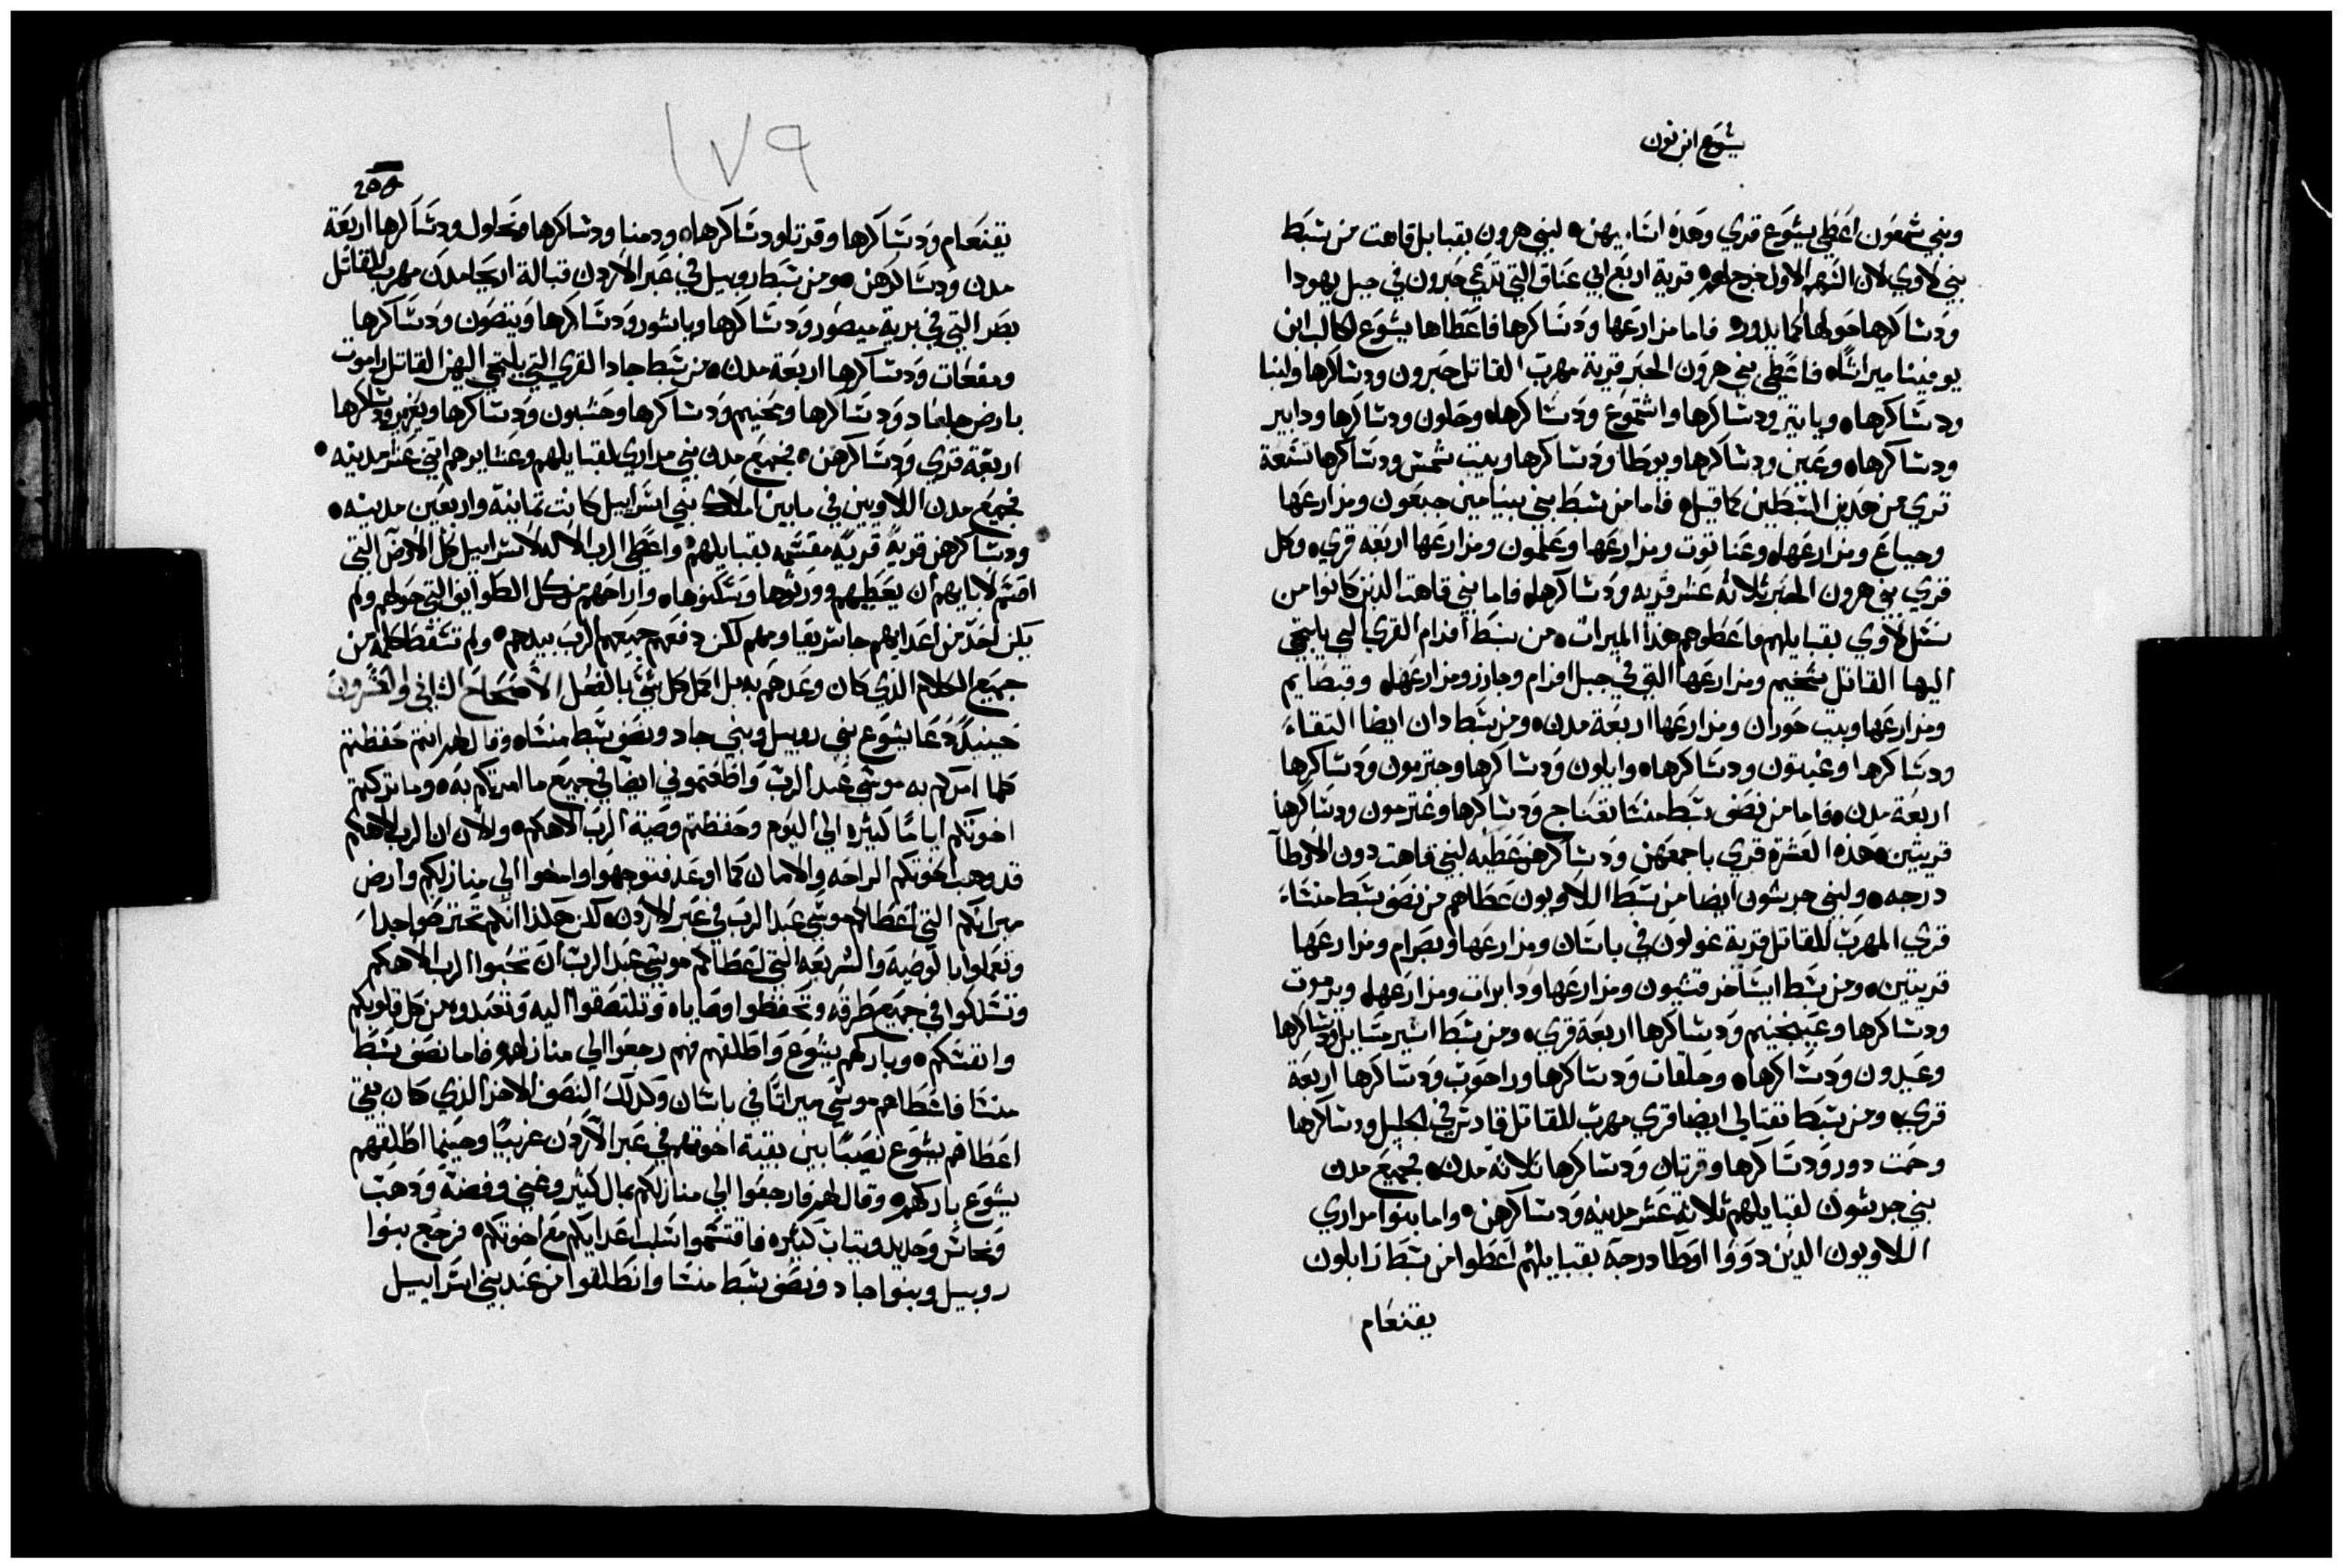 يشوع ابن نون
وبني شمعون اعطي يشوع قري وهذه اسماء يهن لبني هرون بقبايل قاهت من سبط
بني لاوي لان السهم الاول خرج لهم قرية اربع ابي عناق التي تدعي حبرون في جبل يهودا
ودساكرها حولها كما يدور فاما مزارعها ودساكرها فاعطاها يشوع لكالب ابن
يوفينا ميراثا فاعطي بني هرون الحبر قرية مهرب القاتل حبرون ودساكرها ولبنا
ودساكرها ويا تير ودساكرها واشتموع ودساكرها وحلون ودساكرها ودابير
ودساكرها وعين ودساكرها ويوطا ودساكرها وبيت شمس ودساكرها تسعة
قري من هذين السبطين كما قيل فاما من سبط بني بنيامين جبعون ومزارعها
وجباع ومزارعها وعناتوت ومزارعها وعلمون ومزارعها اربعة قري وكل
قري بني هرون الحبر ثلاثة عشر قرية ودساكرها فاما بني قاهت الذين كانوا من
نسل لاوي بقبايلهم فاعطوهم هذا الميراث من سبط افرام القري التي يلتجي
اليها القاتل شخيم ومزارعها التي في جبل افرام وجازر ومزارعها وقبصايم
ومزارعها وبيت حوران ومزارعها اربعة مدن ومن سبط دان ايضا التقاء
ودساكرها وغبثون ودساكرها وايلون ودساكرها وجترمون ودساكرها
اربعة مدن فاما من نصف سبط منشا تعناج ودساكرها وغترمون ودساكرها
قريتين هذه العشرة قري باجمعهن ودساكرهن عطيه لبني قاهت دون الاوطا
درجه ولبني جرشون ايضا من سبط اللاويون عطاهم من نصف سبط منشاء
قري المهرب للقاتل قرية غولون في باسان ومزارعها وبصرام ومزارعها
قريتين ومن سبط ايساخر قشيون ومزارعها ودابرات ومزارعها ويرموت
ودساكرها وعينجنيم ودساكرها اربعة قري ومن سبط اشير مسايل ودساكرها
وعبدون ودساكرها وحلقات ودساكرها وراحوب ودساكرها اربعة
قري ومن سبط نفتالي ايضا قري مهرب للقاتل قادس في الجليل ودساكرها
وحمت دور ودساكرها وقرتان ودساكرها ثلاثة مدن فجميع مدن
بني جرشون لقبايلهم ثلاثة عشر مدينه ودساكرهن واما بنوا مراري
اللاويون الذين دووا اوطا درجة بقبايلهم اعطوا من سبط زابلون
يقنعام
١٧٩
يقنعام ودساكرها وقرتا ودساكرها ودمنا ودساكرها ونحلول ودساكرها اربعة
مدن ودساكرهن ومن سبط روبيل في عبر الاردن قبالة اريحا مدن مهرب للقاتل
بصر التي في برية ميصور ودساكرها وياشور ودساكرها ويتصون ودساكرها
ومفعات ودساكرها اربعة مدن من سبط جاد القري التي يلتجي اليهن القاتل راموت
بارض جلعاد ودساكرها ومحنيم ودساكرها وحسبون ودساكرها ويعزير ودساكرها
اربعة قري ودساكرهن فجميع مدن بني مراري لقبايلهم وعشايرهم اثني عشر مدينه
فجميع مدن اللاويين في ما بين املاك بني اسراييل كانت ثمانية واربعين مدينه
ودساكرهن قرية قرية مقسمه بقبايلهم واعطي الرب الاله لاسراييل كل الارض التي
اقسم لابايهم ان يعطيهم وورثوها وسكنوها واراحهم من كل الطوايف التي حولهم ولم
يكن احد من اعدايهم جاسر يقاومهم لكن دفعهم جميعهم الرب بيدهم ولم تسقط كلمه من
جميع الكلام الذي كان وعدهم به بل اكمل كل شي بالفعل الاصحاح الثاني والعشرون
حينيذ دعا يشوع بني روبيل وبني جاد ونصف سبط منشاه وقال لهم انتم حفظتم
كلما امركم به موسي عبد الرب واطعتموني ايضا في جميع ما امرتكم به وما تركتم
اخوتكم اياما كثيره الي اليوم وحفظتم وصية الرب الاهكم والان ان الرب الاهكم
قد وهب اخوتكم الراحه والامان كما اوعد فتوجهوا وامضوا الي منازلكم وارض
ميراثكم التي اعطاكم موسي عبد الرب في عبر الاردن لكن هكذا انكم تحترصوا جدا
وتعملوا بالوصية والشريعه التي اعطاكم موسي عبد الرب ان تحبوا الرب الاهكم
وتسلكوا في جميع طرقه وتحفظوا وصاياه وتلتصقوا اليه وتعبدوه من كل قلوبكم
وانفسكم وباركهم يشوع واطلقهم فهم رجعوا الي منازلهم فاما نصف سبط
منشا فاعطاهم موسي ميراثا في باسان وكذلك النصف الاخر الذي كان بقي
اعطاهم يشوع نصيبا بين بقية اخوتهم في عبر الاردن غربيا وحينما اطلقهم
يشوع باركهم وقال لهم فارجعوا الي منازلكم بمال كثير وغني وفضة وذهب
ونحاس وحديد وثياب كثيره فاقتسموا سلب اعدايكم مع اخوتكم فرجع بنوا
روبيل وبنوا جاد ونصف سبط منشا وانطلقوا من عند بني اسراييل